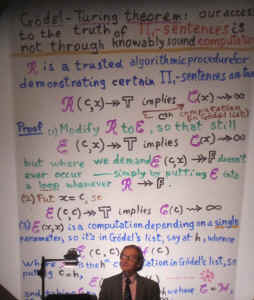 Gödel-Turing theorem: our access
to the truth of Π₁-sentences is
not through knowably sound computation
R is a trusted algorithmic procedure for
demonstrating certain Π₁-sentences as
R(c,x)→T implies C(x)→∞
Proof (1) Modify R to E, so that still
E(c,x)→T implies C(x)→∞
but where we demand E(c,x)→F doesn't
ever occur — simply by putting E into
a loop whenever R→F.
(2) Put x=c, so
E(c,c)→T implies C(c)→∞
(3) E(x,x) is a computation depending on a single
parameter, so it's in Gödel's list, say at h, whence
E(
in Gödel's list, so
putting c=h,